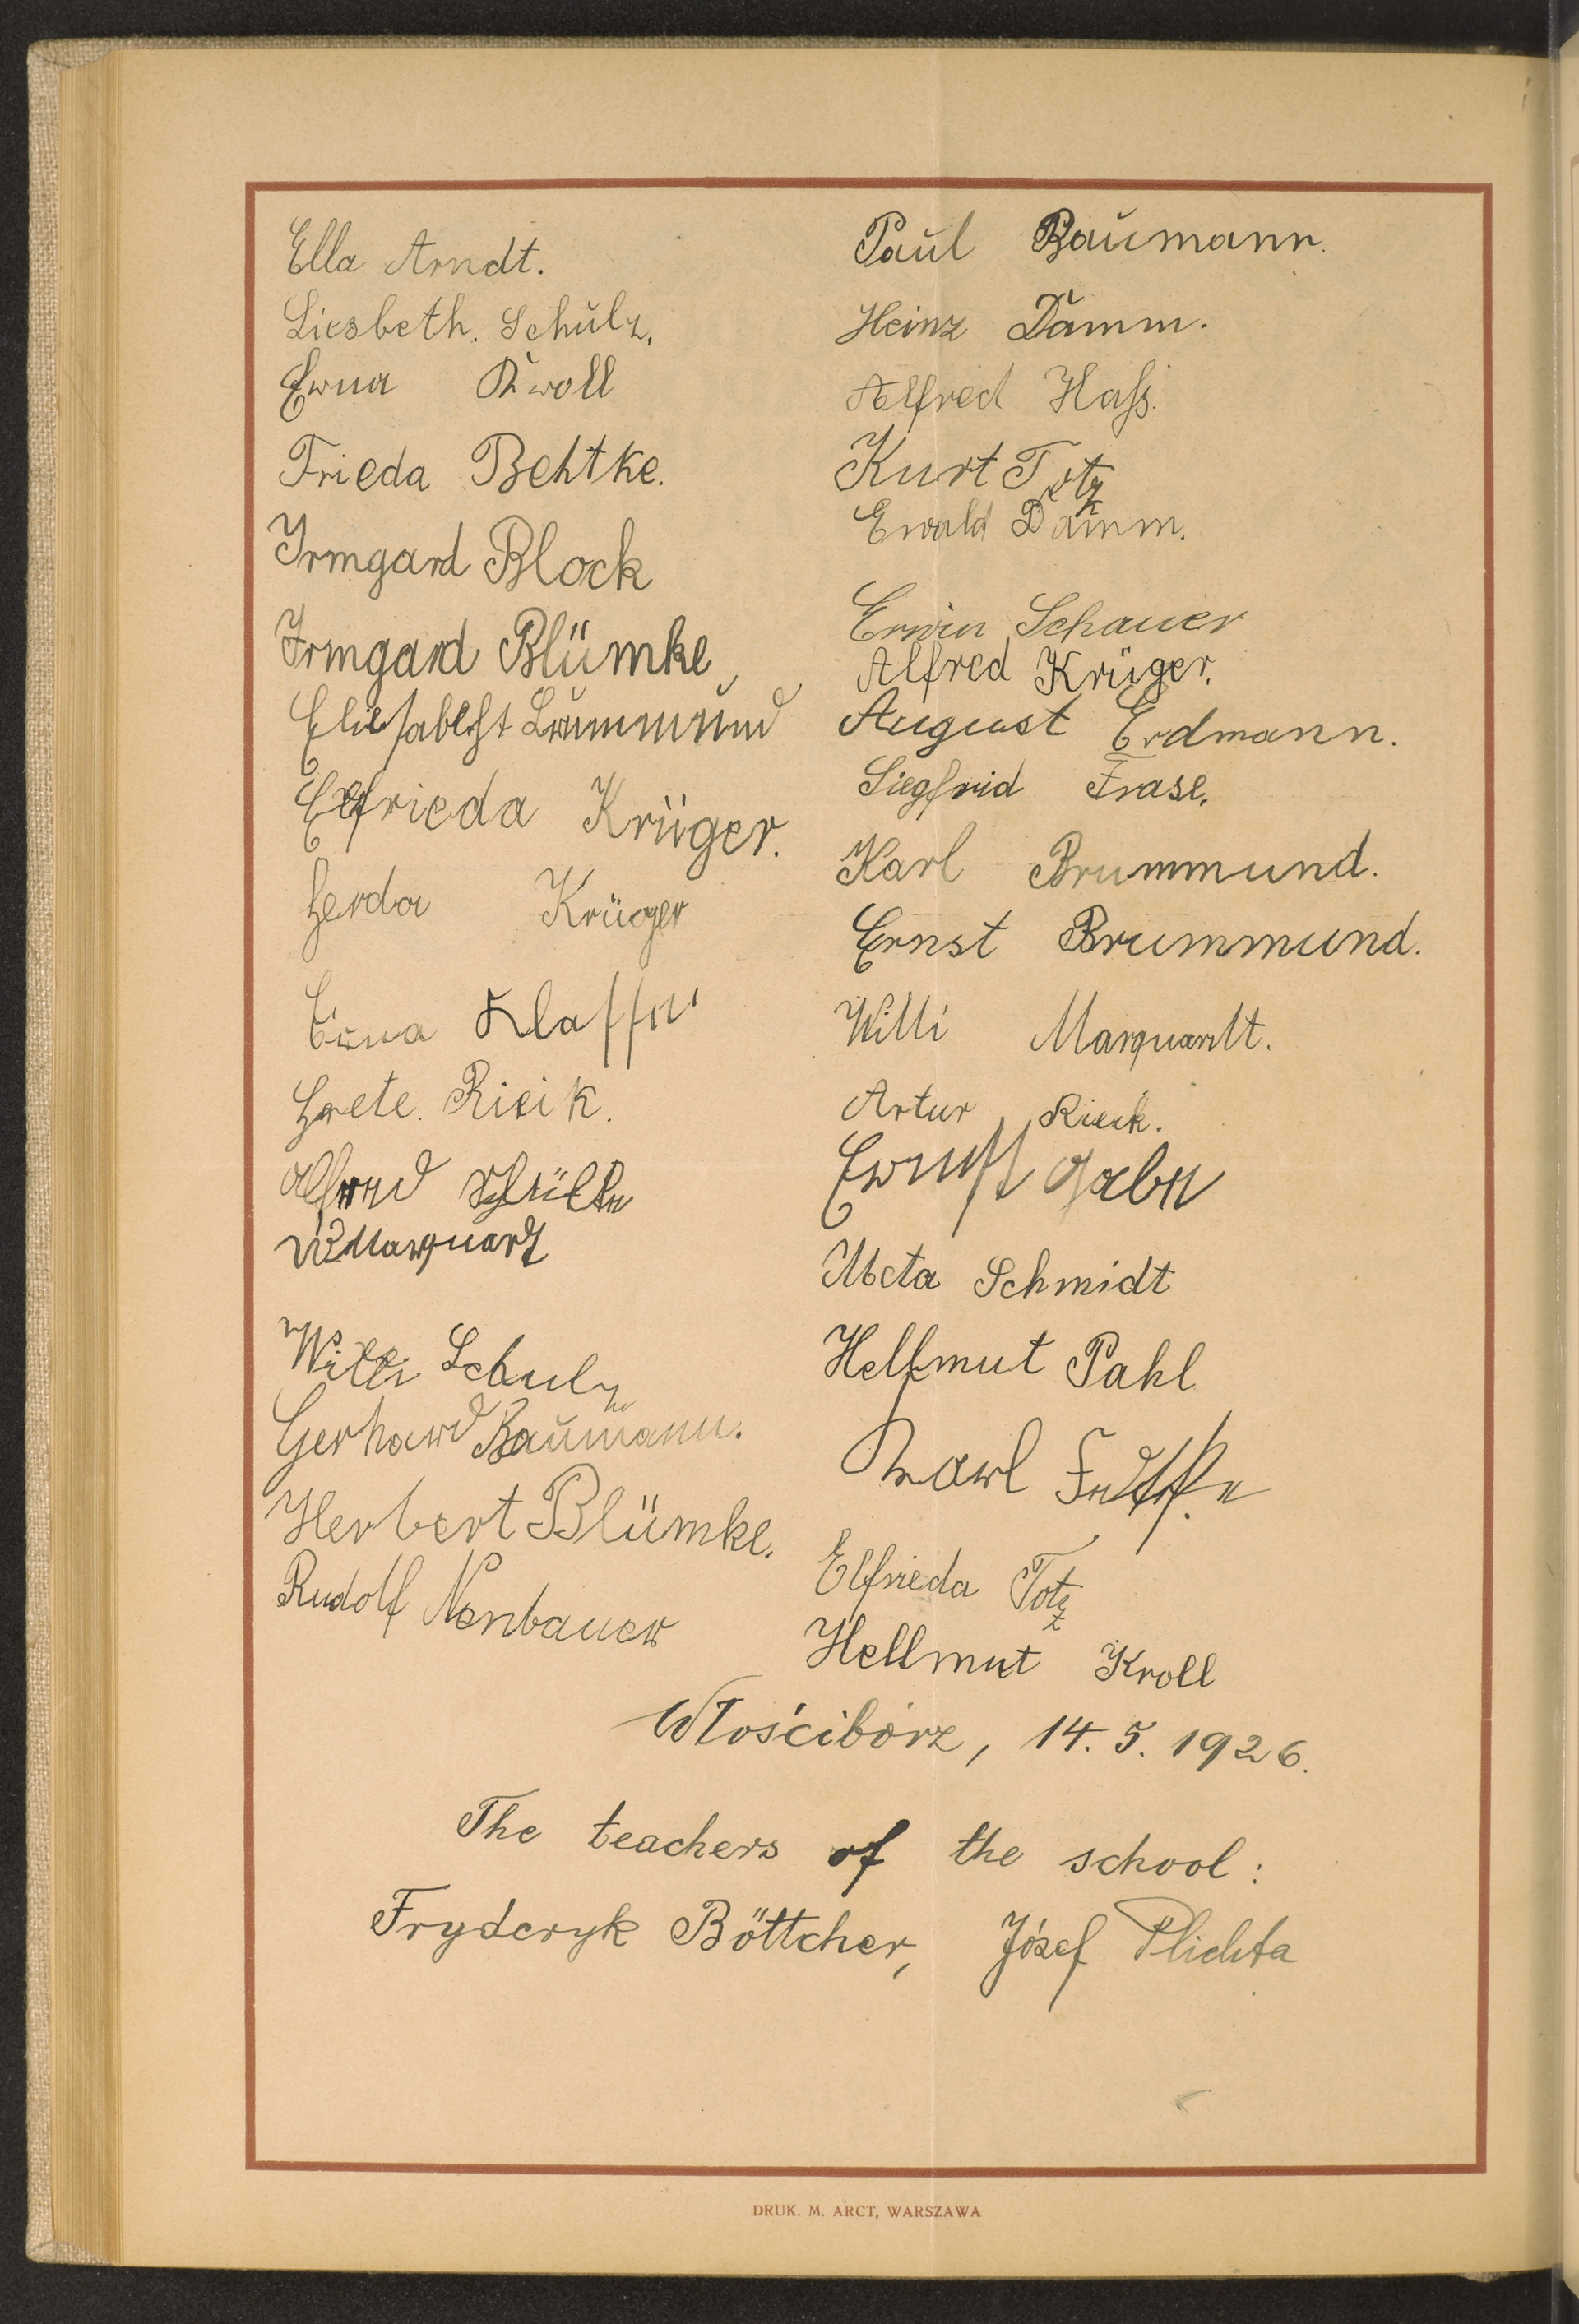 Ella Arndt.
Liesbeth. Schulz.
Erna Kroll
Frieda Behtke.
Irmgard Block
Irmgard Blümke
Eliesabeht Brummund
Elfrieda Krüger.
Gerda Krüger
Erna
Grete. Rieik.
Alfred
W Marquardt
Willi Schulz
Gerhard Baumann.
Herbert Blümke.
Rudolf Nenbauer
Paul Baumann.
Heinz Damm.
Alfred Haß.
Kurt Totz
Ewald Damm.
Erwin Schauer
Alfred Krüger.
August Erdmann.
Siegfrid Frase.
Karl Brummund.
Ernst Brummund.
Willi Marquardt.
Artur Rieck.
Ernst
Meta Schmidt
Hellmut Pahl
Karl
Elfrieda Totz
Hellmut Kroll
Włościbórz, 14. 5. 1926.
The teachers of the school:
Fryderyk Böttcher, Józef Plichta
DRUK. M. ARCT, WARSZAWA